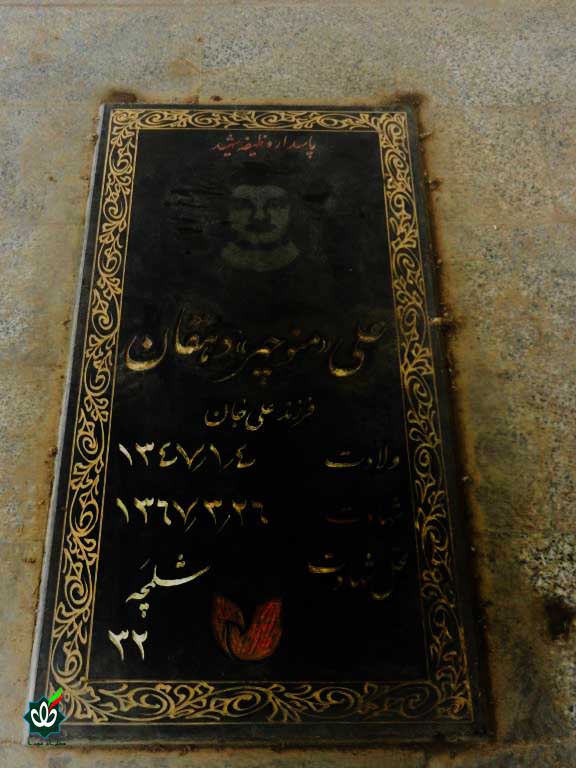 پاسدار وظیفه شهید
علی «منوچهر» دهقان
فرزند علی خان
ولادت ۱۳۴۷٫۱٫۴
شهادت ۱۳۶۷٫۳٫۲۶
محل شهادت شلمچه
۳۲